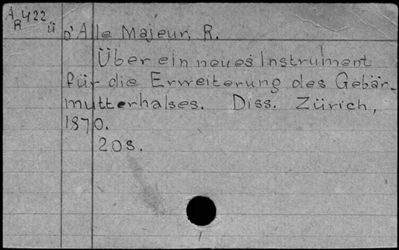 A
R 422 ü
d'Alle Majeur, R.
Über ein neues Instrument
für die Erweiterung des Gebär-
mutterhalses. Diss. Zürich,
1870.
20 S.